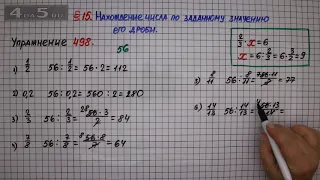 4 АО 5
§15. Нахождение числа по заданному значению
его дроби.
Упражнение 498.
56
2/3 · x = 6
x = 6 : 2/3 = 6 · 3/2 = 9
1) 1/2 56 : 1/2 = 56 · 2 = 112
2) 0,2 56 : 0,2 = 560 : 2 = 280
3) 2/3 56 : 2/3 = 56 · 3 / 2 = 84
4) 7/8 56 : 7/8 = 56 · 8 / 7 = 64
5) 8/11 56 : 8/11 = 7 56 · 11 / 8 = 77
6) 14/13 56 : 14/13 = 4 56 · 13 / 14 =